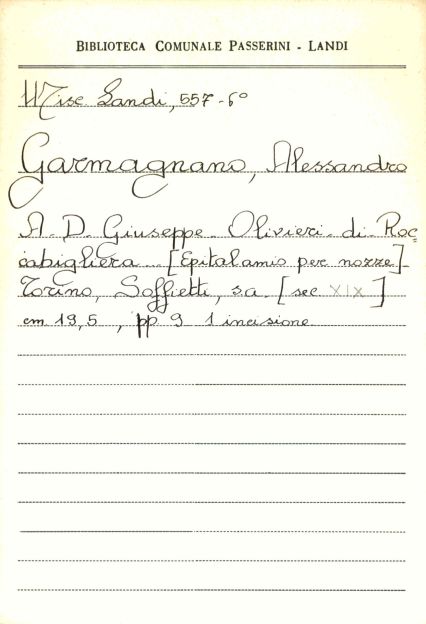 BIBLIOTECA COMUNALE PASSERINI - LANDI
Misc Landi, 557-6º
Garmagnano, Alessandro
A. D. Giuseppe Olivieri di Roc=
cabigliera... [Epitalamio per nozze].
Torino, Soffietti, s.a. [sec XIX]
cm 19,5, pp 9 1 incisione